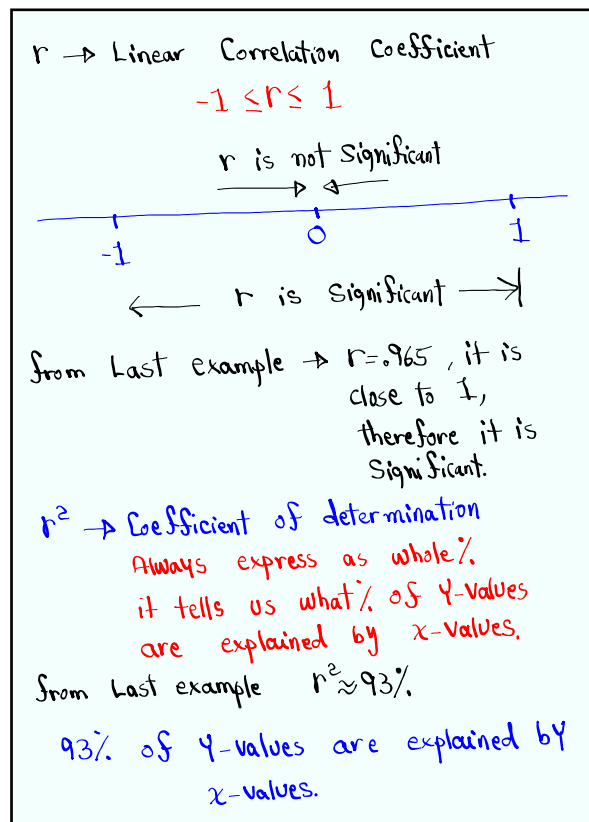 r → Linear Correlation Coefficient
-1 ≤ r ≤ 1
r is not Significant
-1 0 1
r is Significant
from Last example → r=.965, it is
close to 1,
therefore it is
Significant.
r² → Coefficient of determination
Always express as whole %
it tells us what % of Y-values
are explained by x-values.
from Last example r² ≈ 93%
93% of Y-values are explained by
x-values.